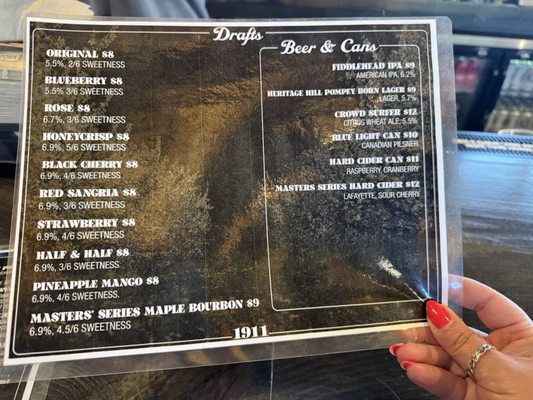 Drafts
ORIGINAL $8
5.5%, 2/6 SWEETNESS
BLUEBERRY $8
5.5% 3/6 SWEETNESS
ROSE $8
6.7%, 3/6 SWEETNESS
HONEYCRISP $8
6.9%, 5/6 SWEETNESS
BLACK CHERRY $8
6.9%, 4/6 SWEETNESS
RED SANGRIA $8
6.9%, 3/6 SWEETNESS
STRAWBERRY $8
6.9%, 4/6 SWEETNESS
HALF & HALF $8
6.9%, 3/6 SWEETNESS
PINEAPPLE MANGO $8
6.9%, 4/6 SWEETNESS
MASTERS' SERIES MAPLE BOURBON $9
6.9%, 4.5/6 SWEETNESS
Beer & Cans
FIDDLEHEAD IPA $9
AMERICAN IPA, 6.2%
HERITAGE HILL POMPEY BORN LAGER $9
LAGER, 5.7%
CROWD SURFER $12
CITRUS WHEAT ALE, 5.5%
BLUE LIGHT CAN $10
CANADIAN PILSNER
HARD CIDER CAN $11
RASPBERRY, CRANBERRY
MASTERS SERIES HARD CIDER $12
LAFAYETTE, SOUR CHERRY
1911